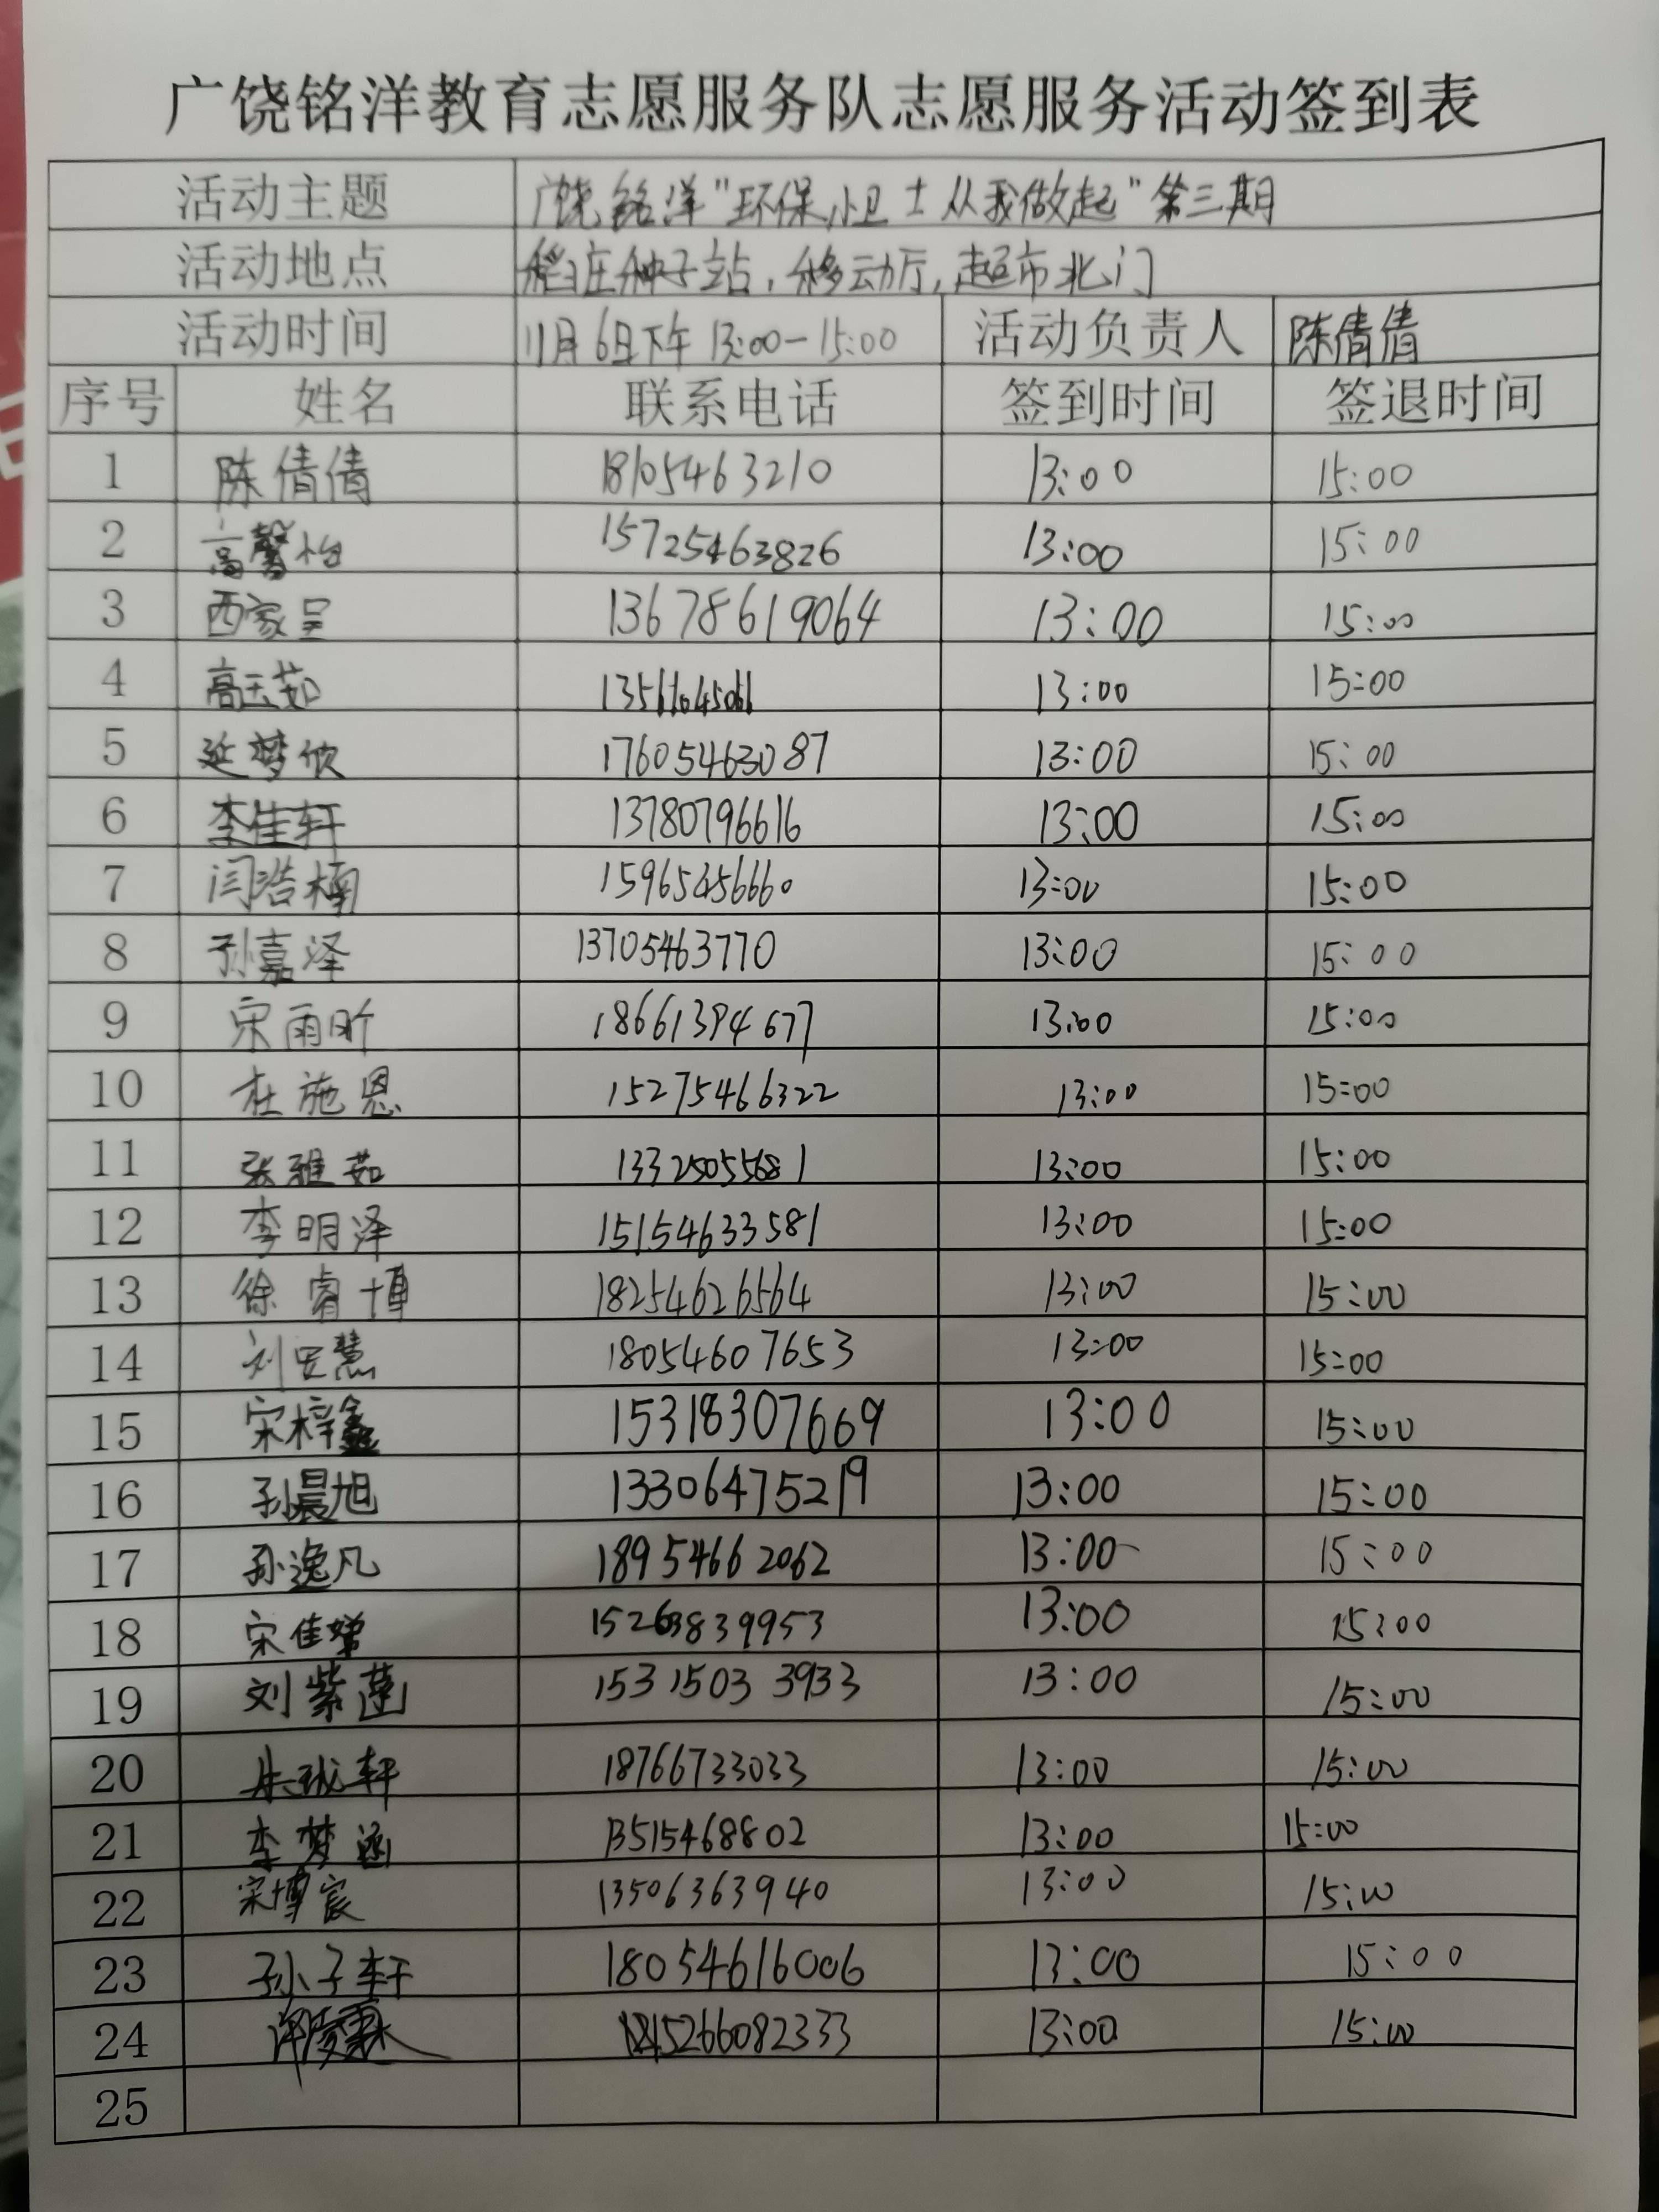 广饶铭洋教育志愿服务队志愿服务活动签到表
活动主题 广饶铭洋"环保小卫士从我做起"第三期
活动地点 稻庄种子站,移动厅,超市北门
活动时间 11月6日下午13:00-15:00 活动负责人 陈倩倩
序号 姓名 联系电话 签到时间 签退时间
1 陈倩倩 18105463210 13:00 15:00
2 高馨怡 15725463826 13:00 15:00
3 西家呈 13678619064 13:00 15:00
4 高玉茹 13:00 15:00
5 延梦欣 17605463087 13:00 15:00
6 李佳轩 13780796616 13:00 15:00
7 闫浩楠 13:00 15:00
8 孙嘉泽 13705463770 13:00 15:00
9 宋雨昕 18661394677 13:00 15:00
10 杜施恩 15275466322 13:00 15:00
11 张雅茹 13:00 15:00
12 李明泽 15154633581 13:00 15:00
13 徐睿博 18254626564 13:00 15:00
14 18054607653 13:00 15:00
15 宋梓鑫 15318307669 13:00 15:00
16 孙晨旭 13306475219 13:00 15:00
17 孙逸凡 18954662062 13:00 15:00
18 15263839953 13:00 15:00
19 刘紫莲 15315033933 13:00 15:00
20 18766733033 13:00 15:00
21 李梦涵 13515468802 13:00 15:00
22 宋博宸 13506363940 13:00 15:00
23 孙子轩 18054616006 13:00 15:00
24 15266082333 13:00 15:00
25